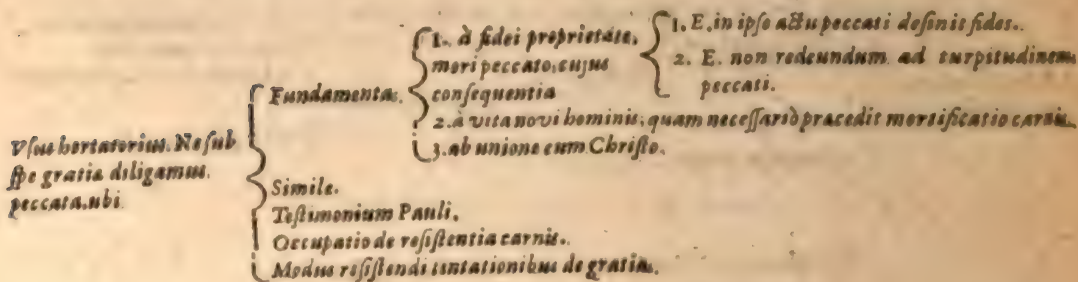 Vſus hortatorius. Ne ſub
ſpe gratiæ diligamus
peccata, ubi
Fundamenta.
1. à fidei proprietate,
mori peccato, cujus
conſequentia
1. E. in ipſo actu peccati deſinit fides.
2. E. non redeundum ad turpitudinem
peccati.
2. à vita novi hominis, quam neceſſariò præcedit mortificatio carnis.
3. ab unione cum Chriſto.
Simile.
Teſtimonium Pauli.
Occupatio de reſiſtentia carnis.
Modus reſiſtendi tentationibus de gratia.